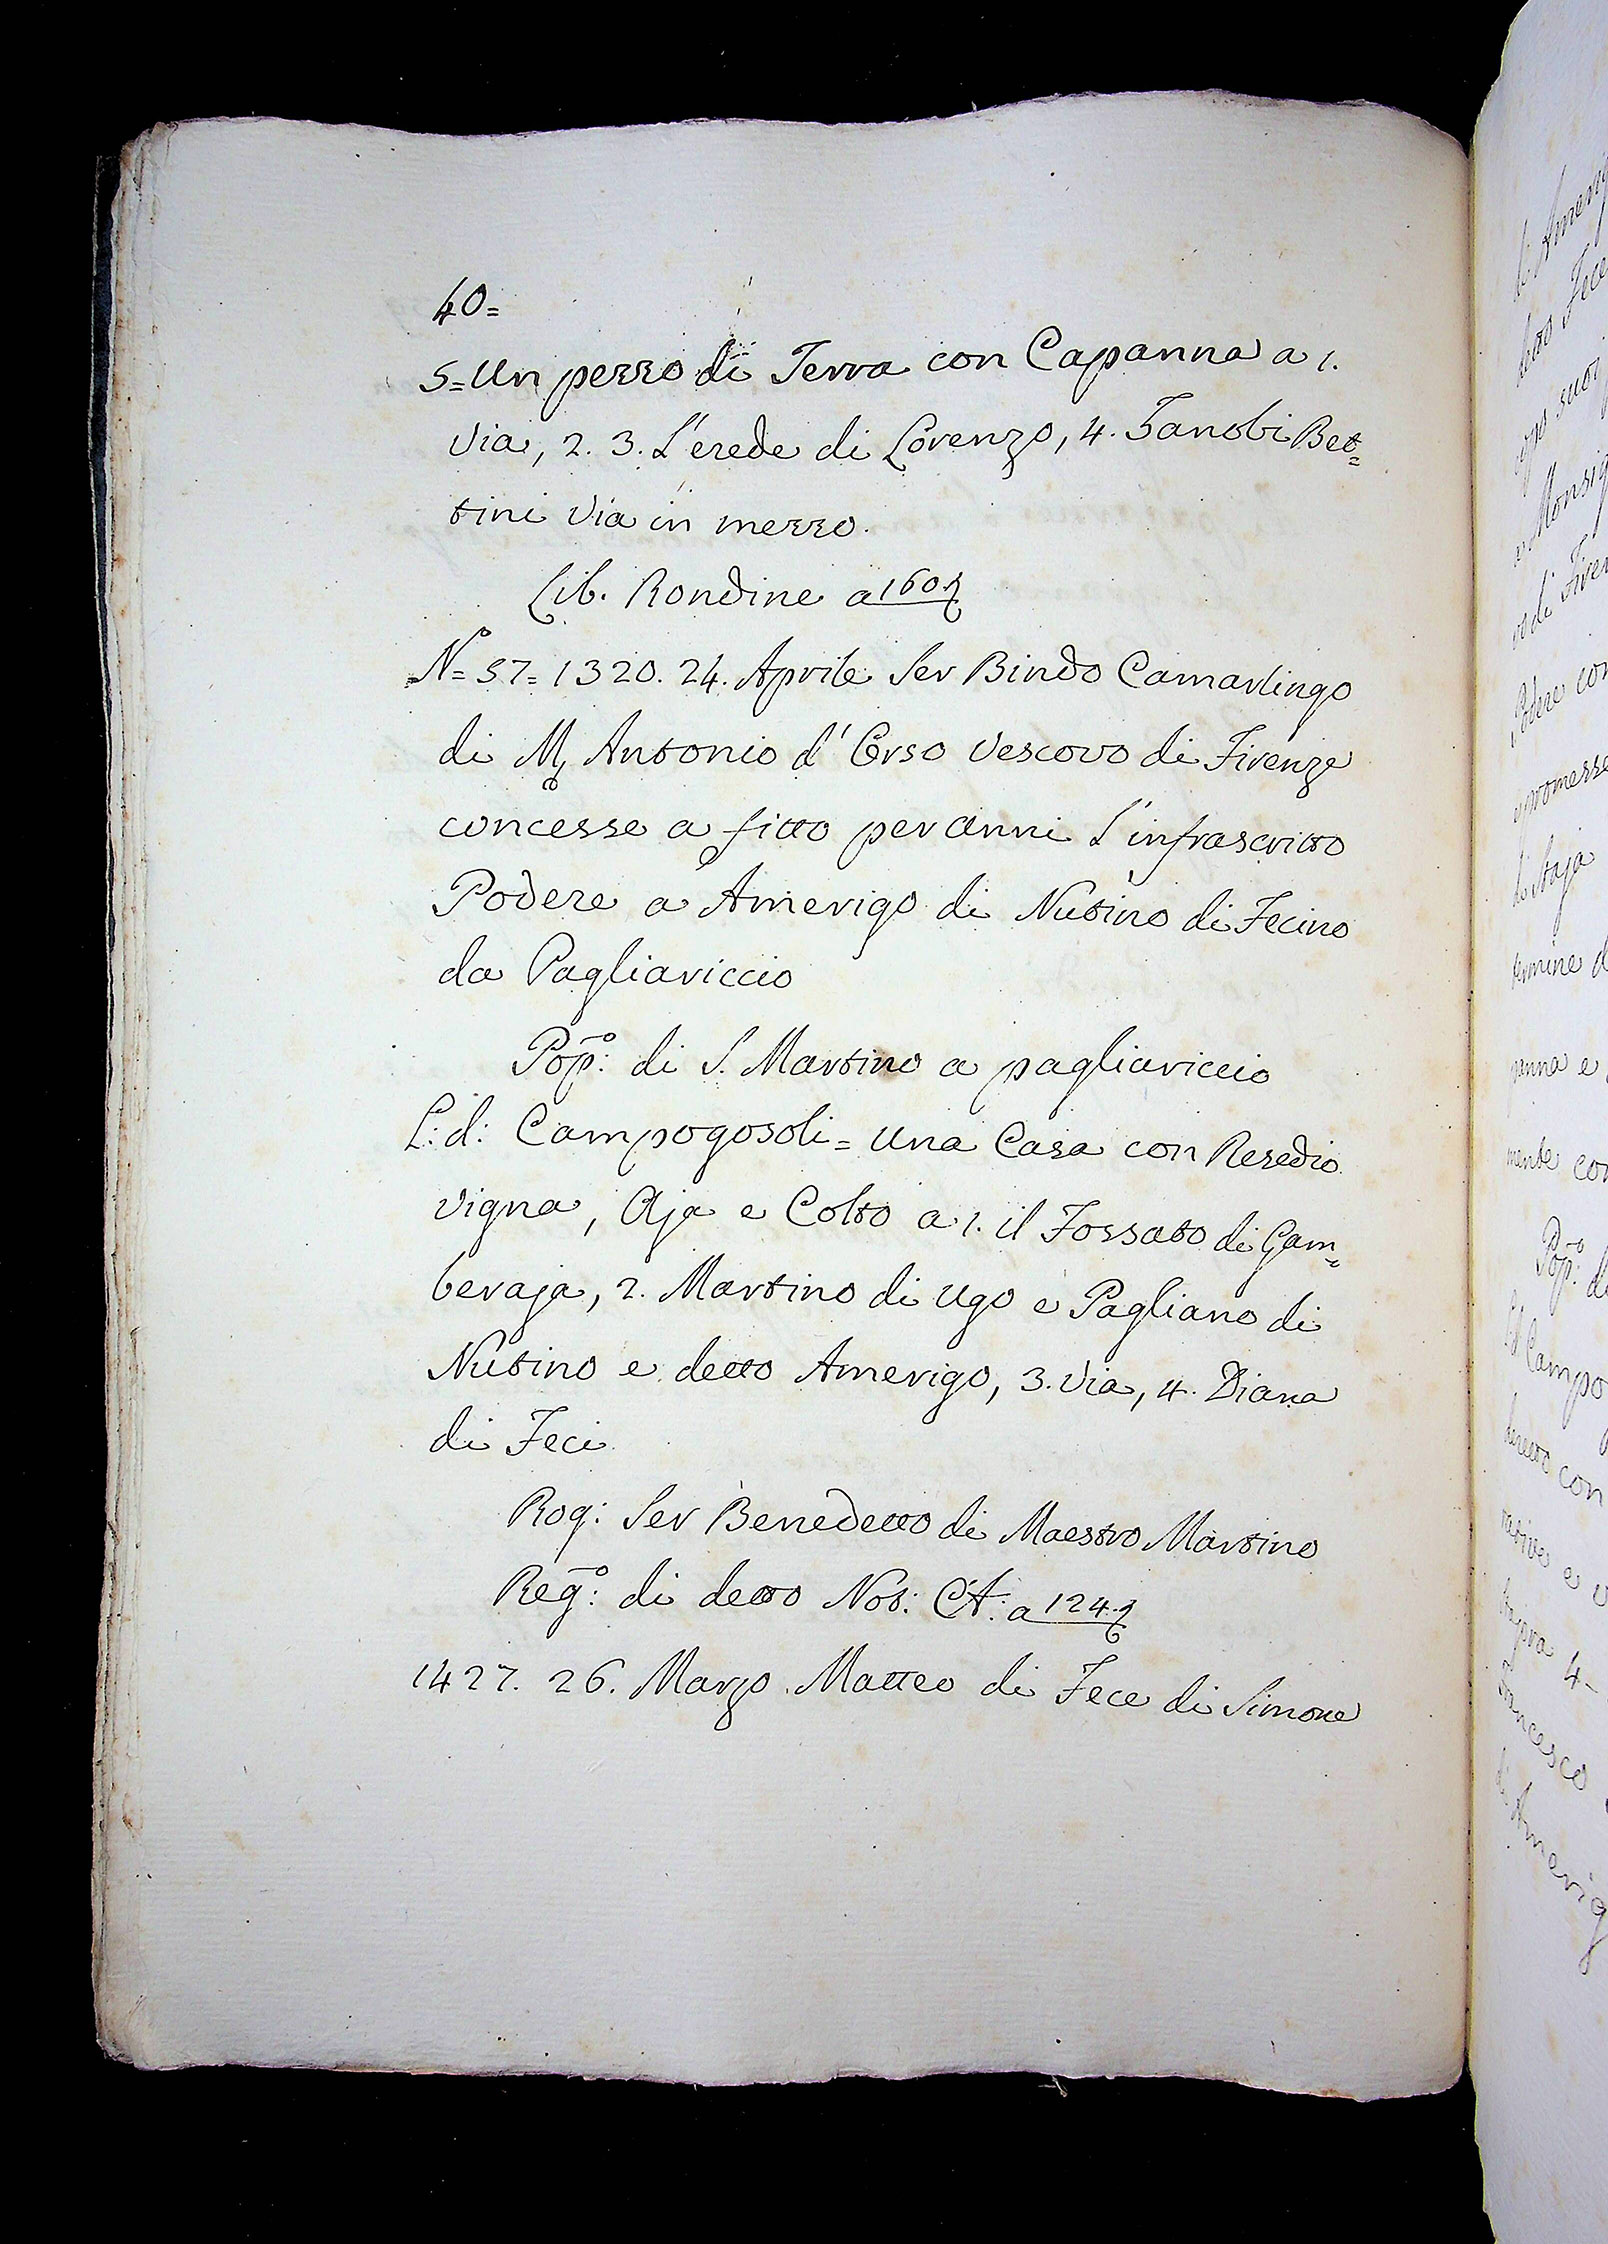 40=
5=Un pezzo di Terra con Capanna a 1.
via, 2. 3. L'erede di Lorenzo, 4. Zanobi Bet=
tini via in mezzo.
Lib. Rondine a 160.
N°= 57= 1320. 24. Aprile Ser Bindo Camarlingo
di M. Antonio d'Orso Vescovo di Firenze
concesse a fitto per anni L'infrascritto
Podere a Amerigo di Nutino di Fecino
da Pagliariccio
Pop°: di S. Martino a pagliariccio
L: d: Campogosoli= una Casa con Resedio
vigna, Aja e Colto a 1. il Fossato di Gam=
beraja, 2. Martino di Ugo e Pagliano di
Nutino e detto Amerigo, 3. via, 4. Diana
di Feci
Rog: Ser Benedetto di Maestro Martino
Reg°: di detto Not: CA: a 124.
1427. 26. Marzo Matteo di Fece di Simone
di Amerig
Monsig
Podere con
promesse
di Staja
termine d
mente con
Pop°: di
Campog
sopra 4-
Francesco
di Amerig